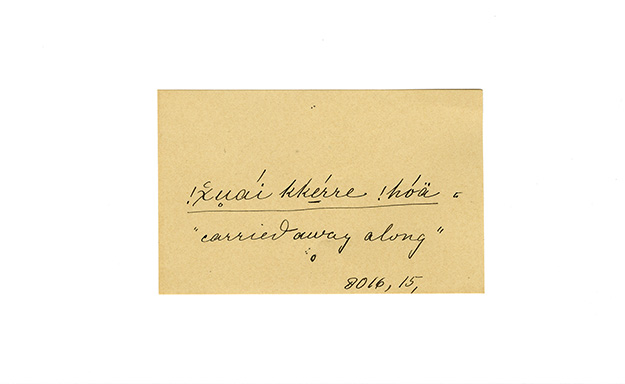 !χ̆u̥ái kkérre !hóä
"carried away along"
8016, 15,